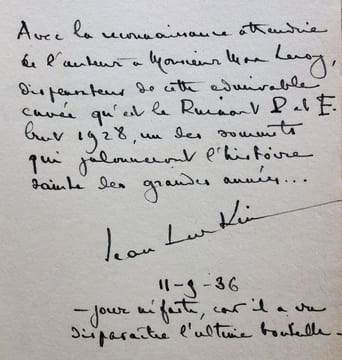 Avec la reconnaissance attendrie
de l'auteur à Monsieur Max Leroy,
dispensateur de cette admirable
cuvée qu'est le Ruinart P et F.
brut 1928, un des sommets
qui jalonneront l'histoire
sainte des grandes années...
Jean
11-9-36
— jour néfaste, car il a vu
disparaître l'ultime bouteille —